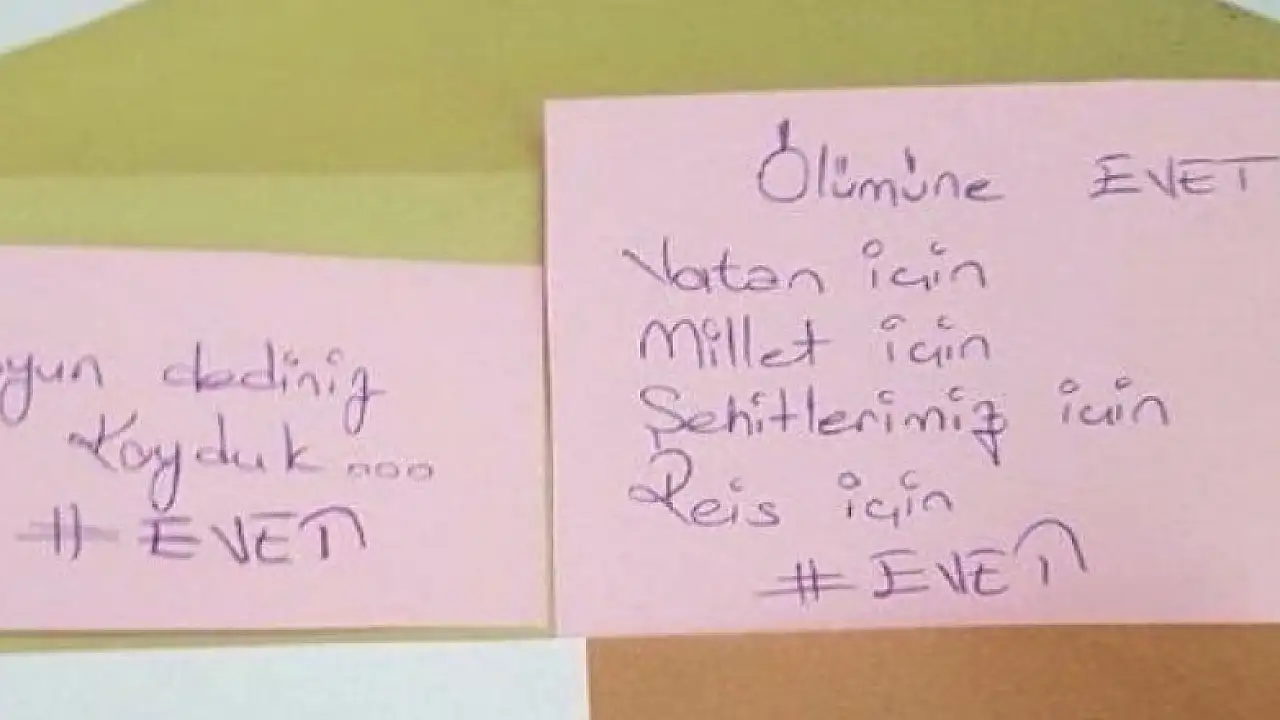 yun dediniz
Koyduk...
# EVET
Ölümüne EVET
Vatan için
Millet için
Şehitlerimiz için
Reis için
# EVET